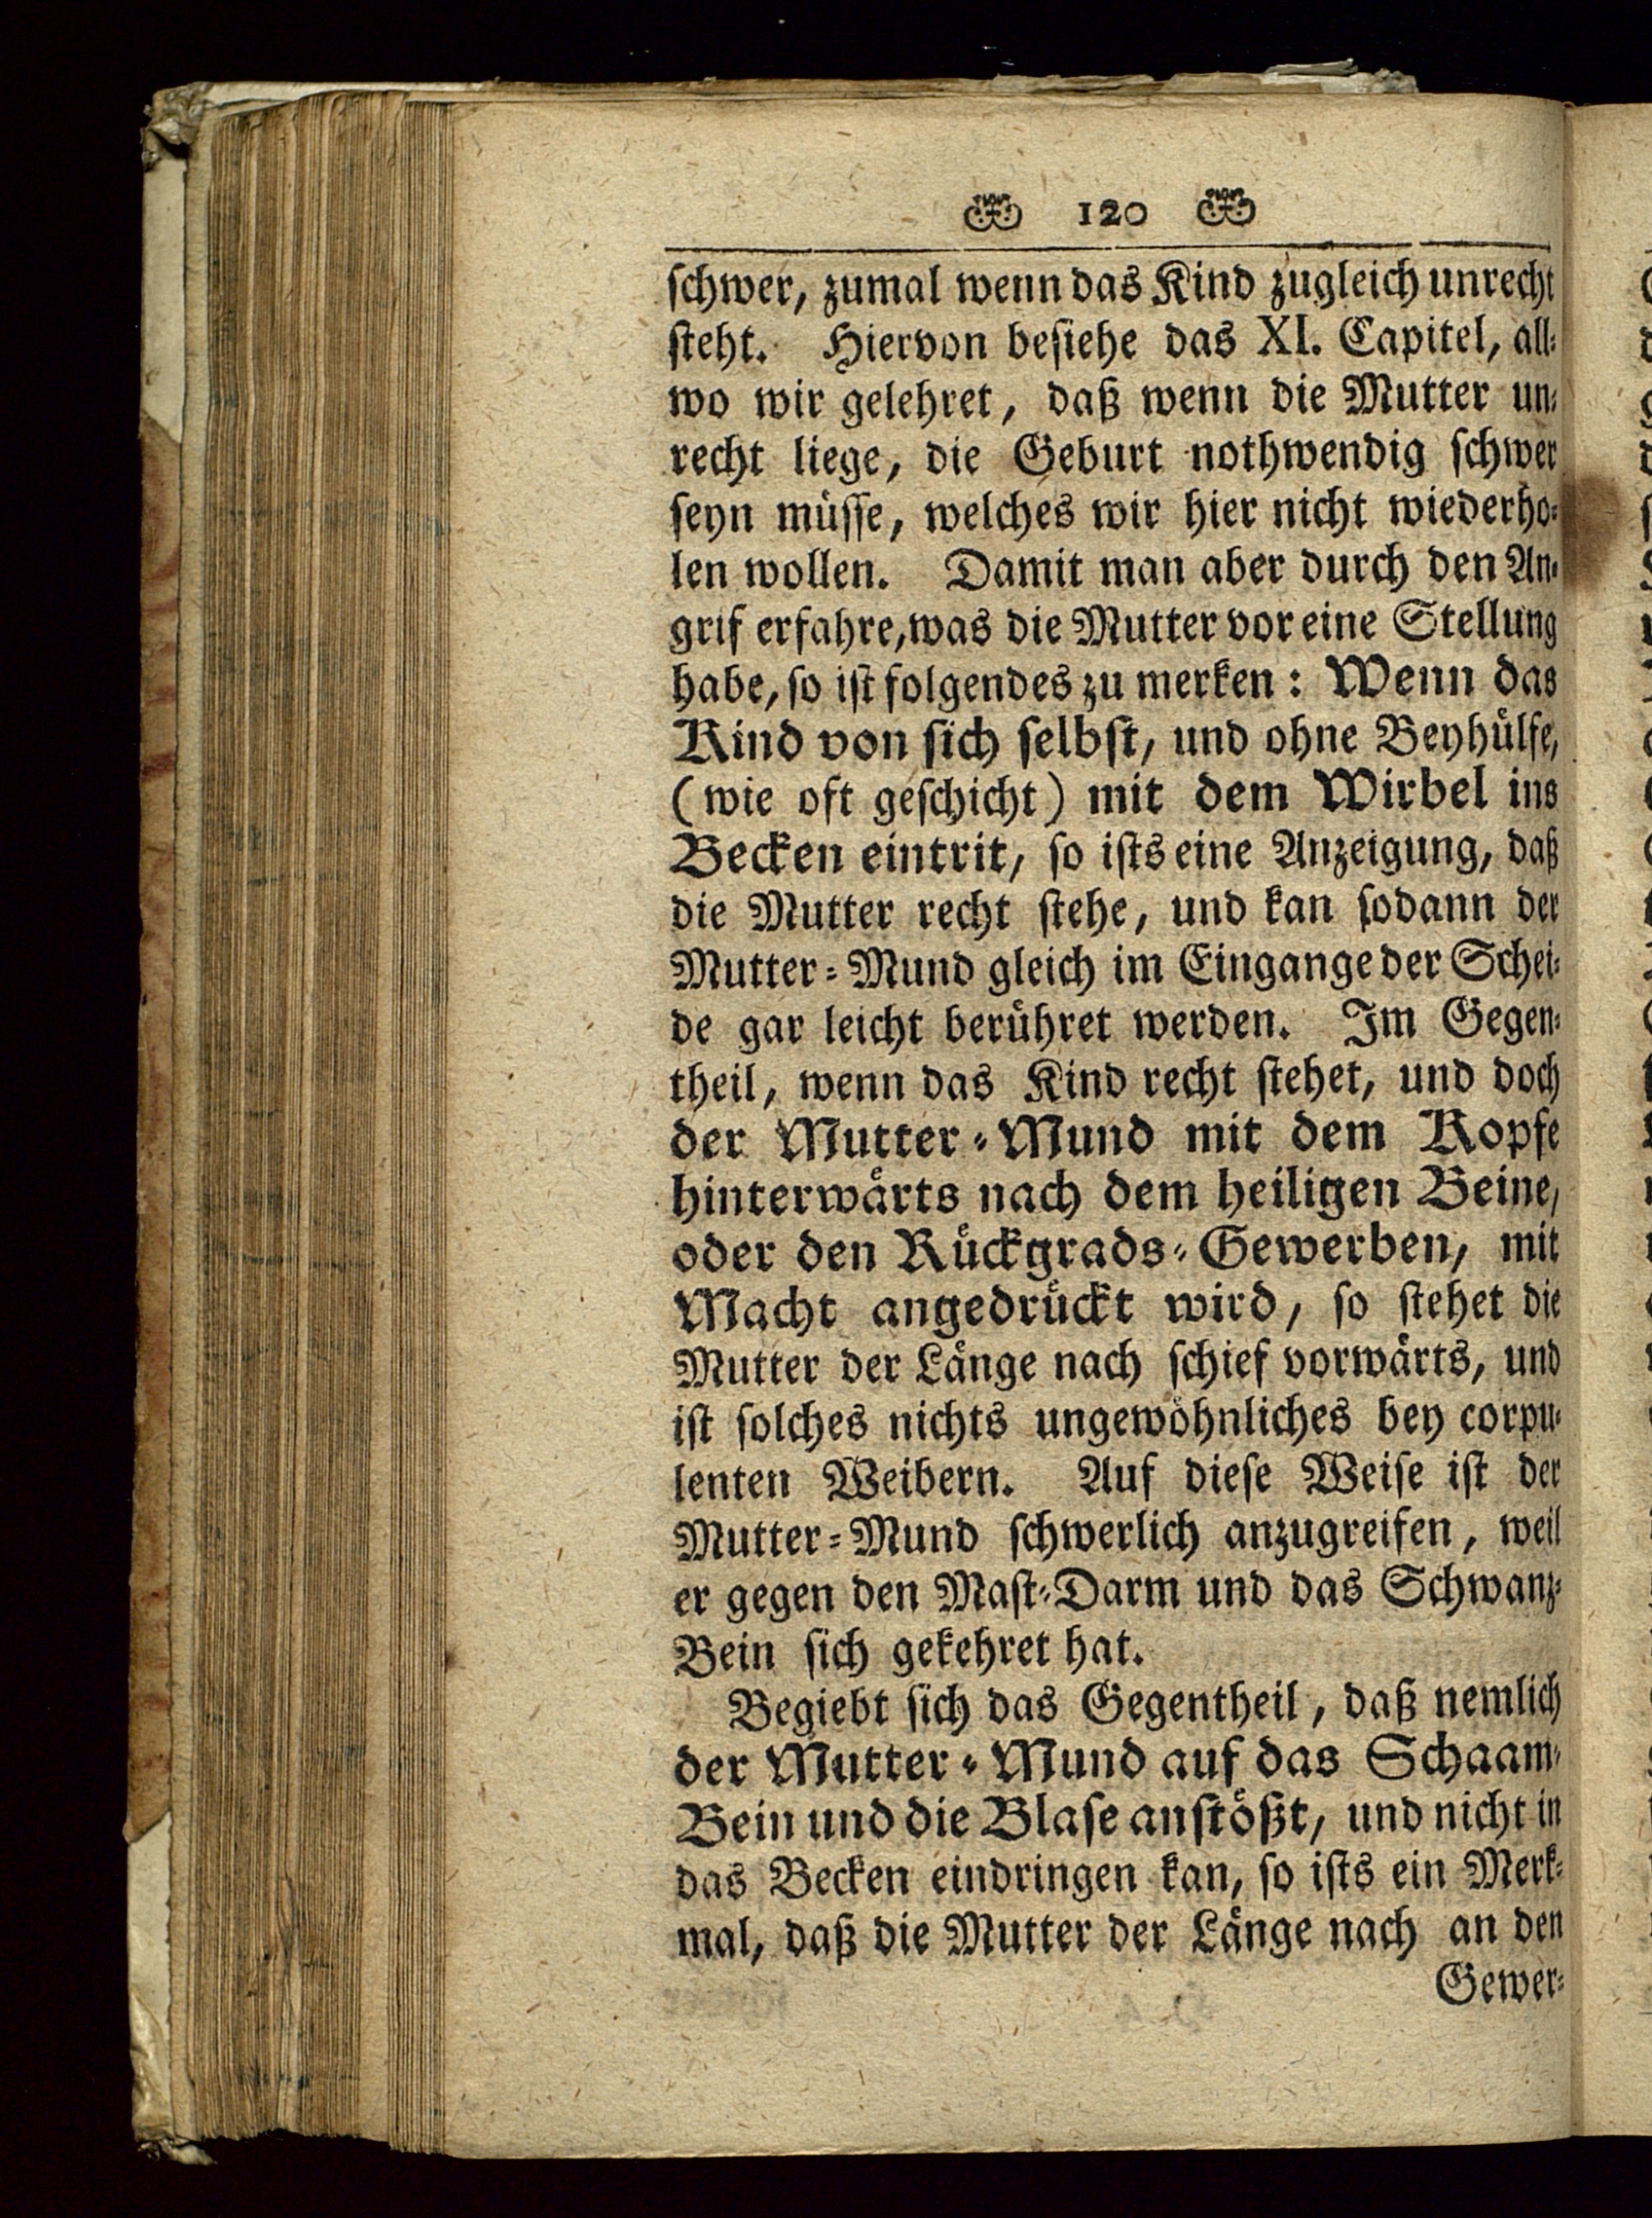 120
ſchwer, zumal wenn das Kind zugleich unrecht
ſteht. Hiervon beſiehe das XI. Capitel, all⸗
wo wir gelehret, daß wenn die Mutter un⸗
recht liege, die Geburt nothwendig ſchwer
ſeyn muͤſſe, welches wir hier nicht wiederho⸗
len wollen. Damit man aber durch den An⸗
grif erfahre, was die Mutter vor eine Stellung
habe, ſo iſt folgendes zu merken: Wenn das
Kind von ſich ſelbſt, und ohne Beyhuͤlfe,
(wie oft geſchicht) mit dem Wirbel ins
Becken eintrit, ſo iſts eine Anzeigung, daß
die Mutter recht ſtehe, und kan ſodann der
Mutter⸗Mund gleich im Eingange der Schei⸗
de gar leicht beruͤhret werden. Im Gegen⸗
theil, wenn das Kind recht ſtehet, und doch
der Mutter⸗Mund mit dem Kopfe
hinterwaͤrts nach dem heiligen Beine,
oder den Ruͤckgrads⸗Gewerben, mit
Macht angedruͤckt wird, ſo ſtehet die
Mutter der Laͤnge nach ſchief vorwaͤrts, und
iſt ſolches nichts ungewoͤhnliches bey corpu⸗
lenten Weibern. Auf dieſe Weiſe iſt der
Mutter⸗Mund ſchwerlich anzugreifen, weil
er gegen den Maſt⸗Darm und das Schwanz⸗
Bein ſich gekehret hat.
Begiebt ſich das Gegentheil, daß nemlich
der Mutter⸗Mund auf das Schaam⸗
Bein und die Blaſe anſtoͤßt, und nicht in
das Becken eindringen kan, ſo iſts ein Merk⸗
mal, daß die Mutter der Laͤnge nach an den
Gewer⸗